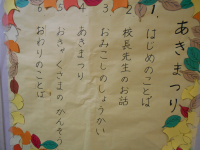 あきまつり
1. はじめのことば
2. 校長先生のお話
3. おみこしのしょうかい
4. あきまつり
5. おきゃくさまのかんそう
6. おわりのことば